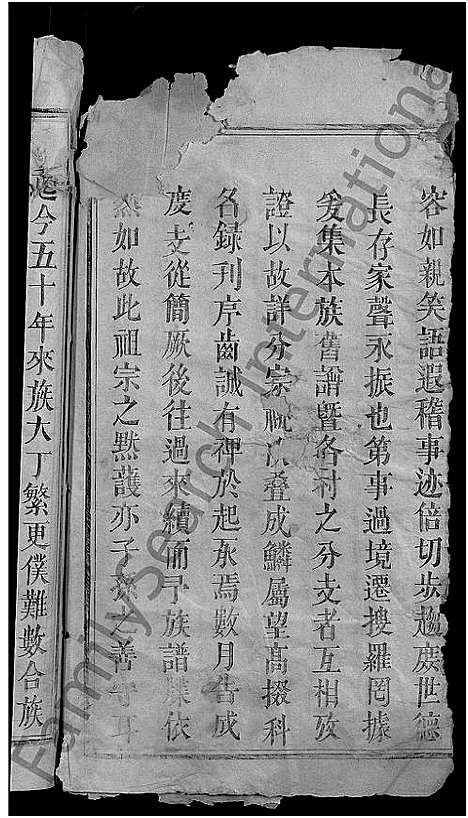 容如親笑語遐稽事迹倍切步趨庶世德
長存家聲永振也第事過境遷搜羅罔據
爰集本族舊譜曁各村之分支者互相攷
證以故詳分宗 叠成鱗屬望高掇科
名録刊序齒誠有裨於起承焉數月告成
度支從簡厥後往過來續而予族譜 依
然如故此祖宗之黙護亦子孫之善守耳
迄今五十年來族大丁繁更僕難數合族
FamilySearch International